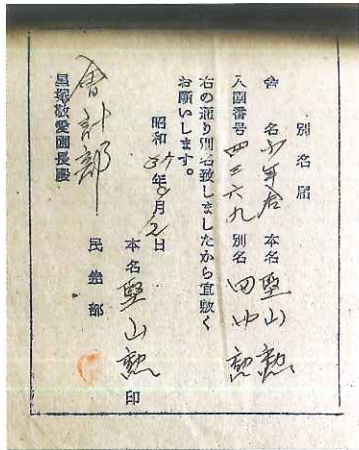 別名届
舎名 少年舎 本名 竪山勲
入園番号 四三六九 別名 田中勲
右の通り別名致しましたから宜敷く
お願いします。
昭和 年 月 日
本名 竪山勲 印
民 部
會計部
星塚敬愛園長殿